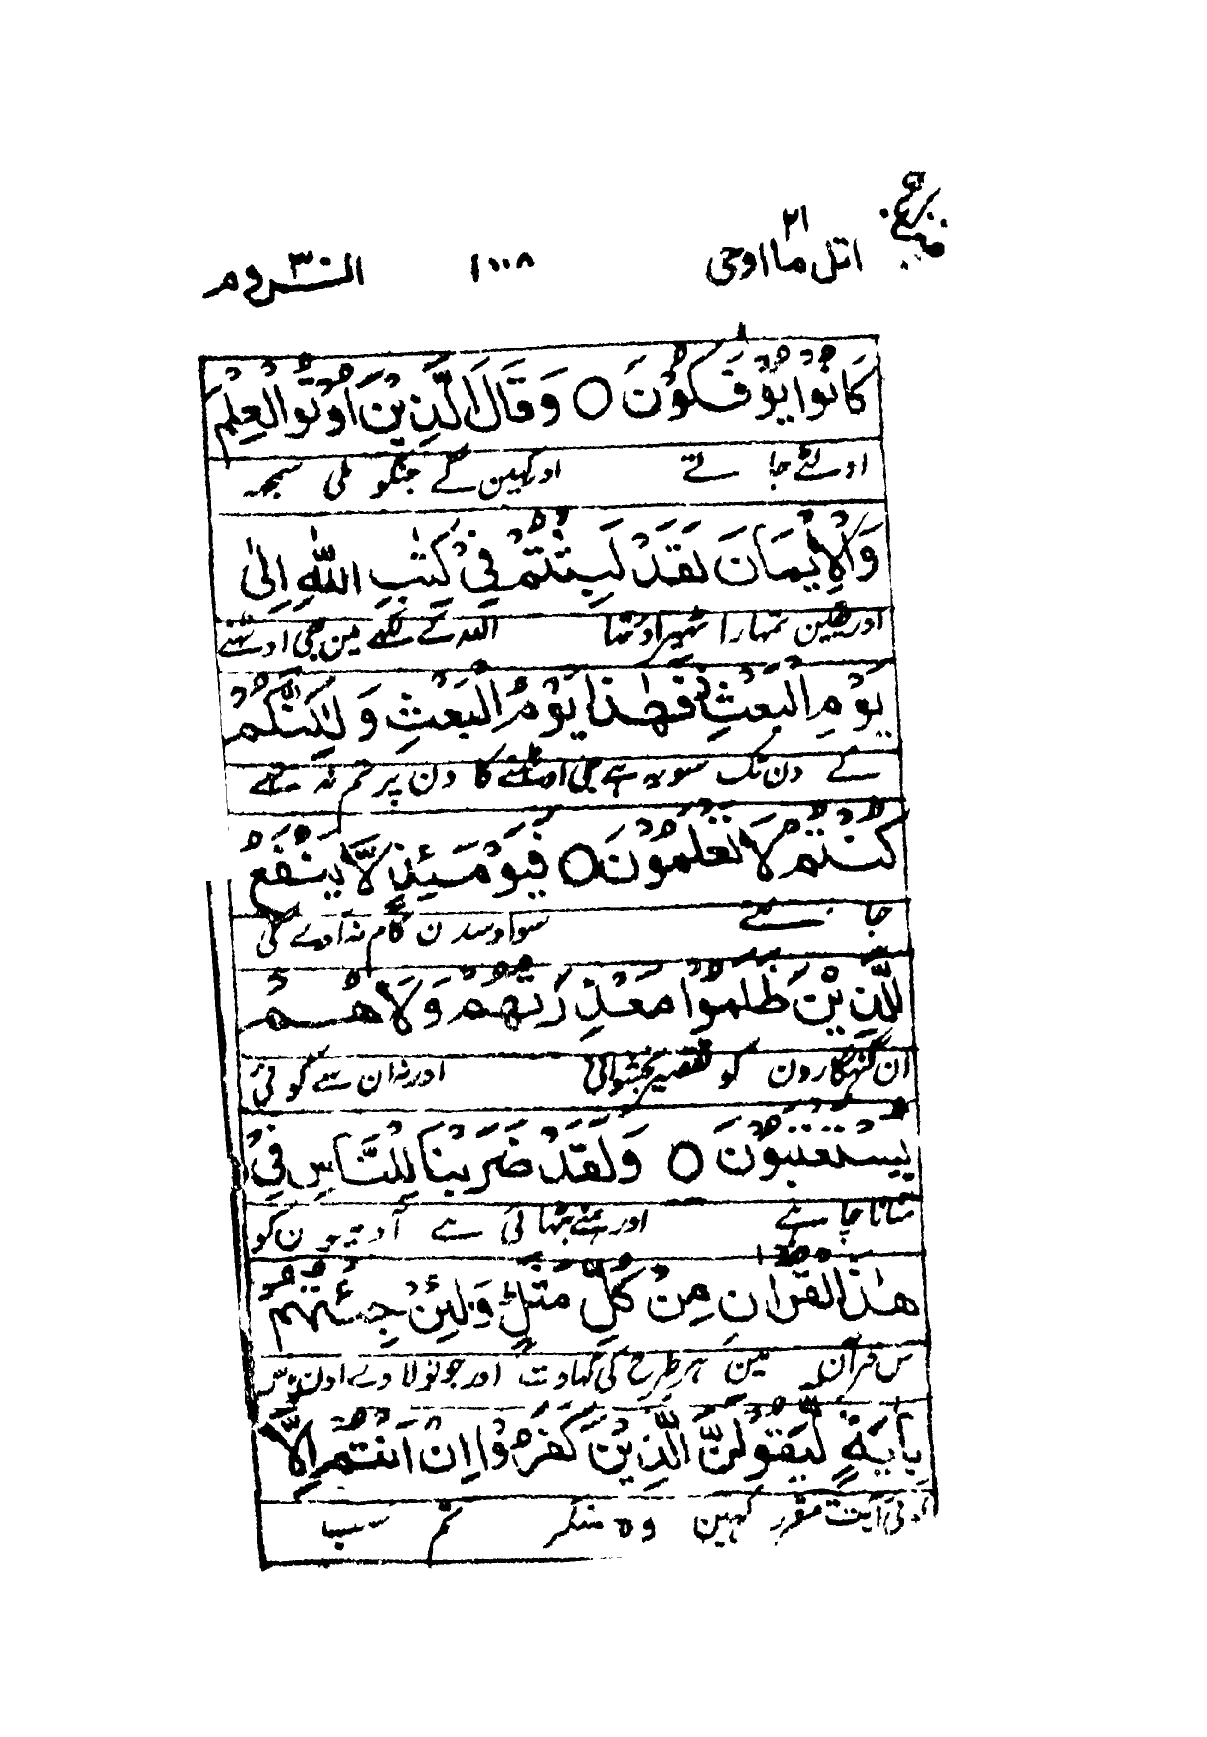 اتل ما اوحی ٢١
١٠٠٨
الروم ٣٠
كَانُوْا يُؤْفَكُوْنَ ○ وَقَالَ الَّذِيْنَ اُوْتُوا الْعِلْمَ
اولٹے جاتے اور کہین گے جنکو ملی سمجھ
وَالْاِيْمَانَ لَقَدْ لَبِثْتُمْ فِيْ كِتٰبِ اللّٰهِ اِلٰى
اور یقین تمہارا ٹھیراو تھا اللہ کے لکھے مین جی اوٹھنے
يَوْمِ الْبَعْثِ فَهٰذَا يَوْمُ الْبَعْثِ وَلٰكِنَّكُمْ
کے دن تک سو یہ ہے جی اوٹھنے کا دن پر تم نہ تھے
كُنْتُمْ لَا تَعْلَمُوْنَ ○ فَيَوْمَئِذٍ لَّا يَنْفَعُ
جانتے سو اوسدن کام نہ آوے گی
الَّذِيْنَ ظَلَمُوْا مَعْذِرَتُهُمْ وَلَا هُمْ
ان گنہگارون کو تقصیر بخشوانی اور نہ ان سے کوئی
يُسْتَعْتَبُوْنَ ○ وَلَقَدْ ضَرَبْنَا لِلنَّاسِ فِيْ
منانا چاہے اور ہمنے بٹھائی ہے آدمیون کو
هٰذَا الْقُرْاٰنِ مِنْ كُلِّ مَثَلٍ وَلَئِنْ جِئْتَهُمْ
س قرآن مین ہر طرح کی کہاوت اور جو تو لاوے اون پاس
بِاٰيَةٍ لَّيَقُوْلَنَّ الَّذِيْنَ كَفَرُوْا اِنْ اَنْتُمْ اِلَّا
کوئی آیت مقرر کہین وہ منکر تم سب